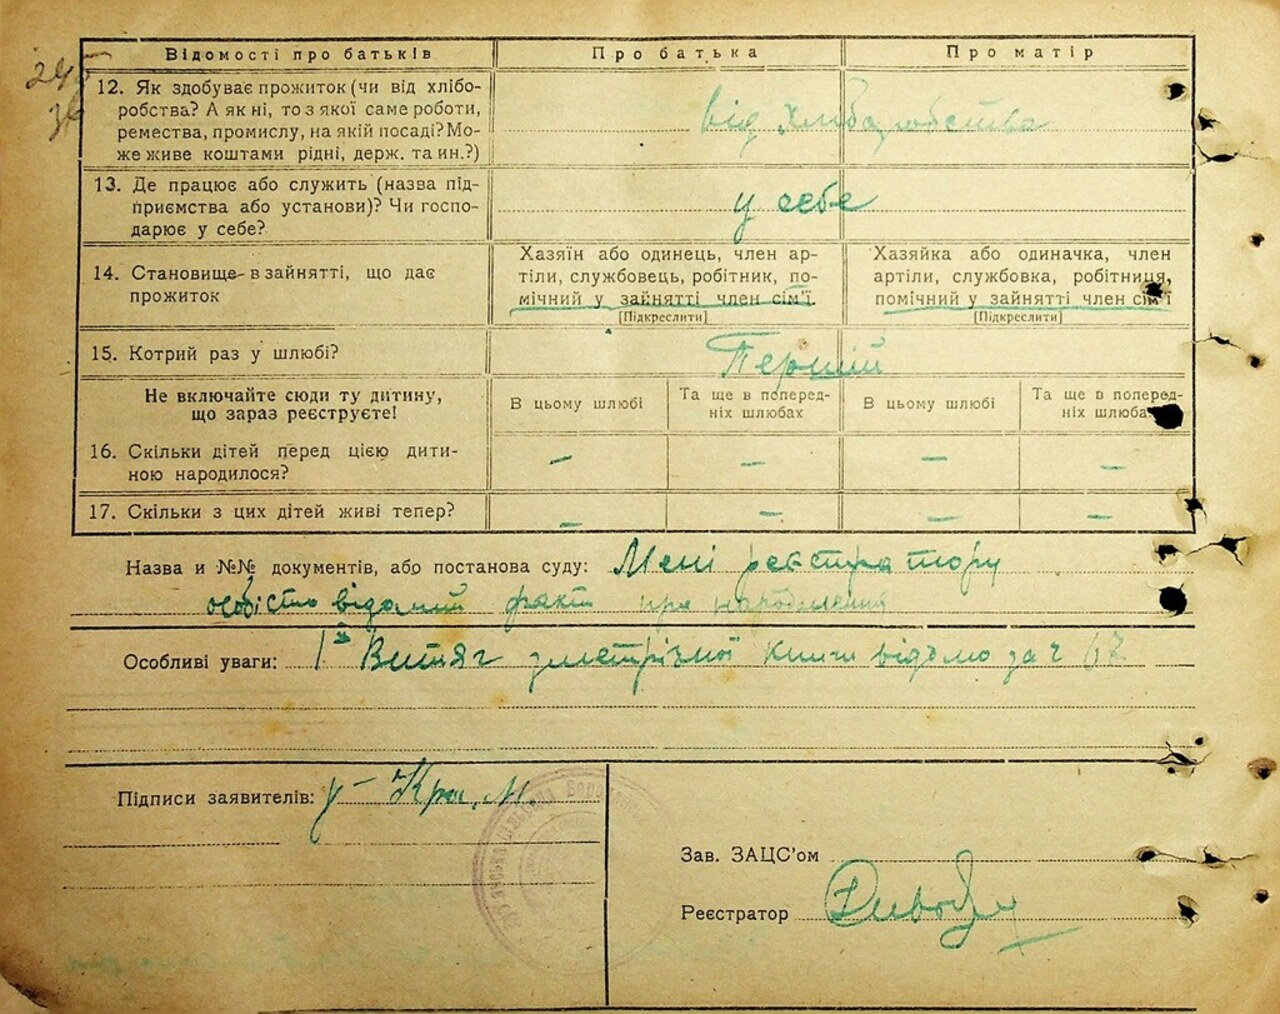 245
Відомості про батьків
Про батька
Про матір
12. Як здобуває прожиток (чи від хлібо-
робства? А як ні, то з якої саме роботи,
ремества, промислу, на якій посаді? Мо-
же живе коштами рідні, держ. та ин.?)
від хліборобства
13. Де працює або служить (назва під-
приємства або установи)? Чи госпо-
дарює у себе?
у себе
14. Становище в зайнятті, що дає
прожиток
Хазяїн або одинець, член ар-
тіли, службовець, робітник, по-
мічний у зайнятті член сім'ї.
[Підкреслити]
Хазяйка або одиначка, член
артіли, службовка, робітниця,
помічний у зайнятті член сім'ї
[Підкреслити]
15. Котрий раз у шлюбі?
Перший
Не включайте сюди ту дитину,
що зараз реєструєте!
В цьому шлюбі
Та ще в поперед-
ніх шлюбах
В цьому шлюбі
Та ще в поперед-
ніх шлюбах
16. Скільки дітей перед цією дити-
ною народилося?
– – – –
17. Скільки з цих дітей живі тепер?
– – – –
Назва и №№ документів, або постанова суду: Мені реєстратору
особісто відомий факт про народження
Особливі уваги: Витяг з метрізної книги відьмо за ч 67
Підписи заявителів:
Зав. ЗАЦС'ом
Реєстратор